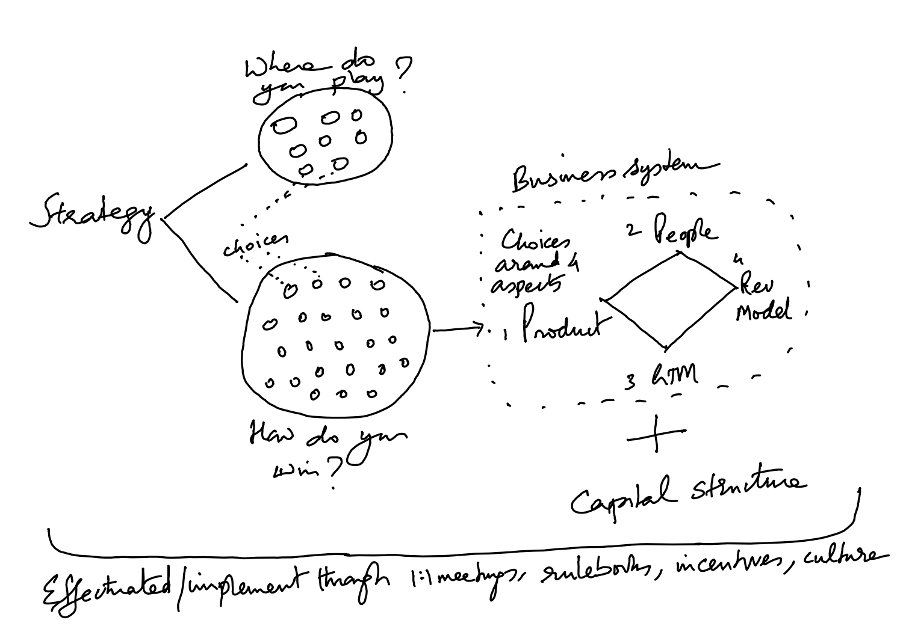 Where do
you play?
Strategy
choices
How do you
win?
Business system
Choices
around 4
aspects
2 People
4
Rev
Model
1 Product
3 GTM
+
Capital structure
Effectuated/implement through 1:1 meetings, rulebooks, incentives, culture